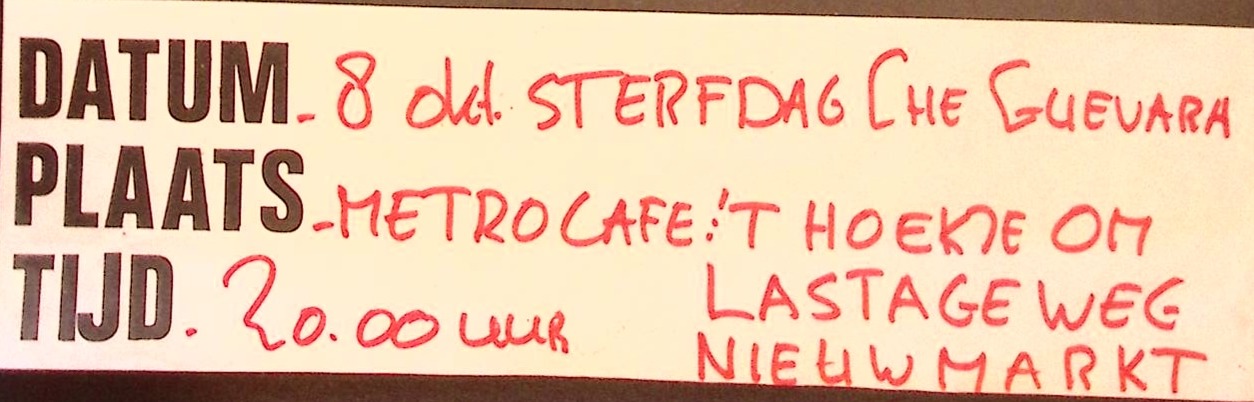 DATUM- 8 okt. STERFDAG CHE GUEVARA
PLAATS-METROCAFE:'T HOEKJE OM
LASTAGEWEG
TIJD. 20.00 uur
NIEUWMARKT